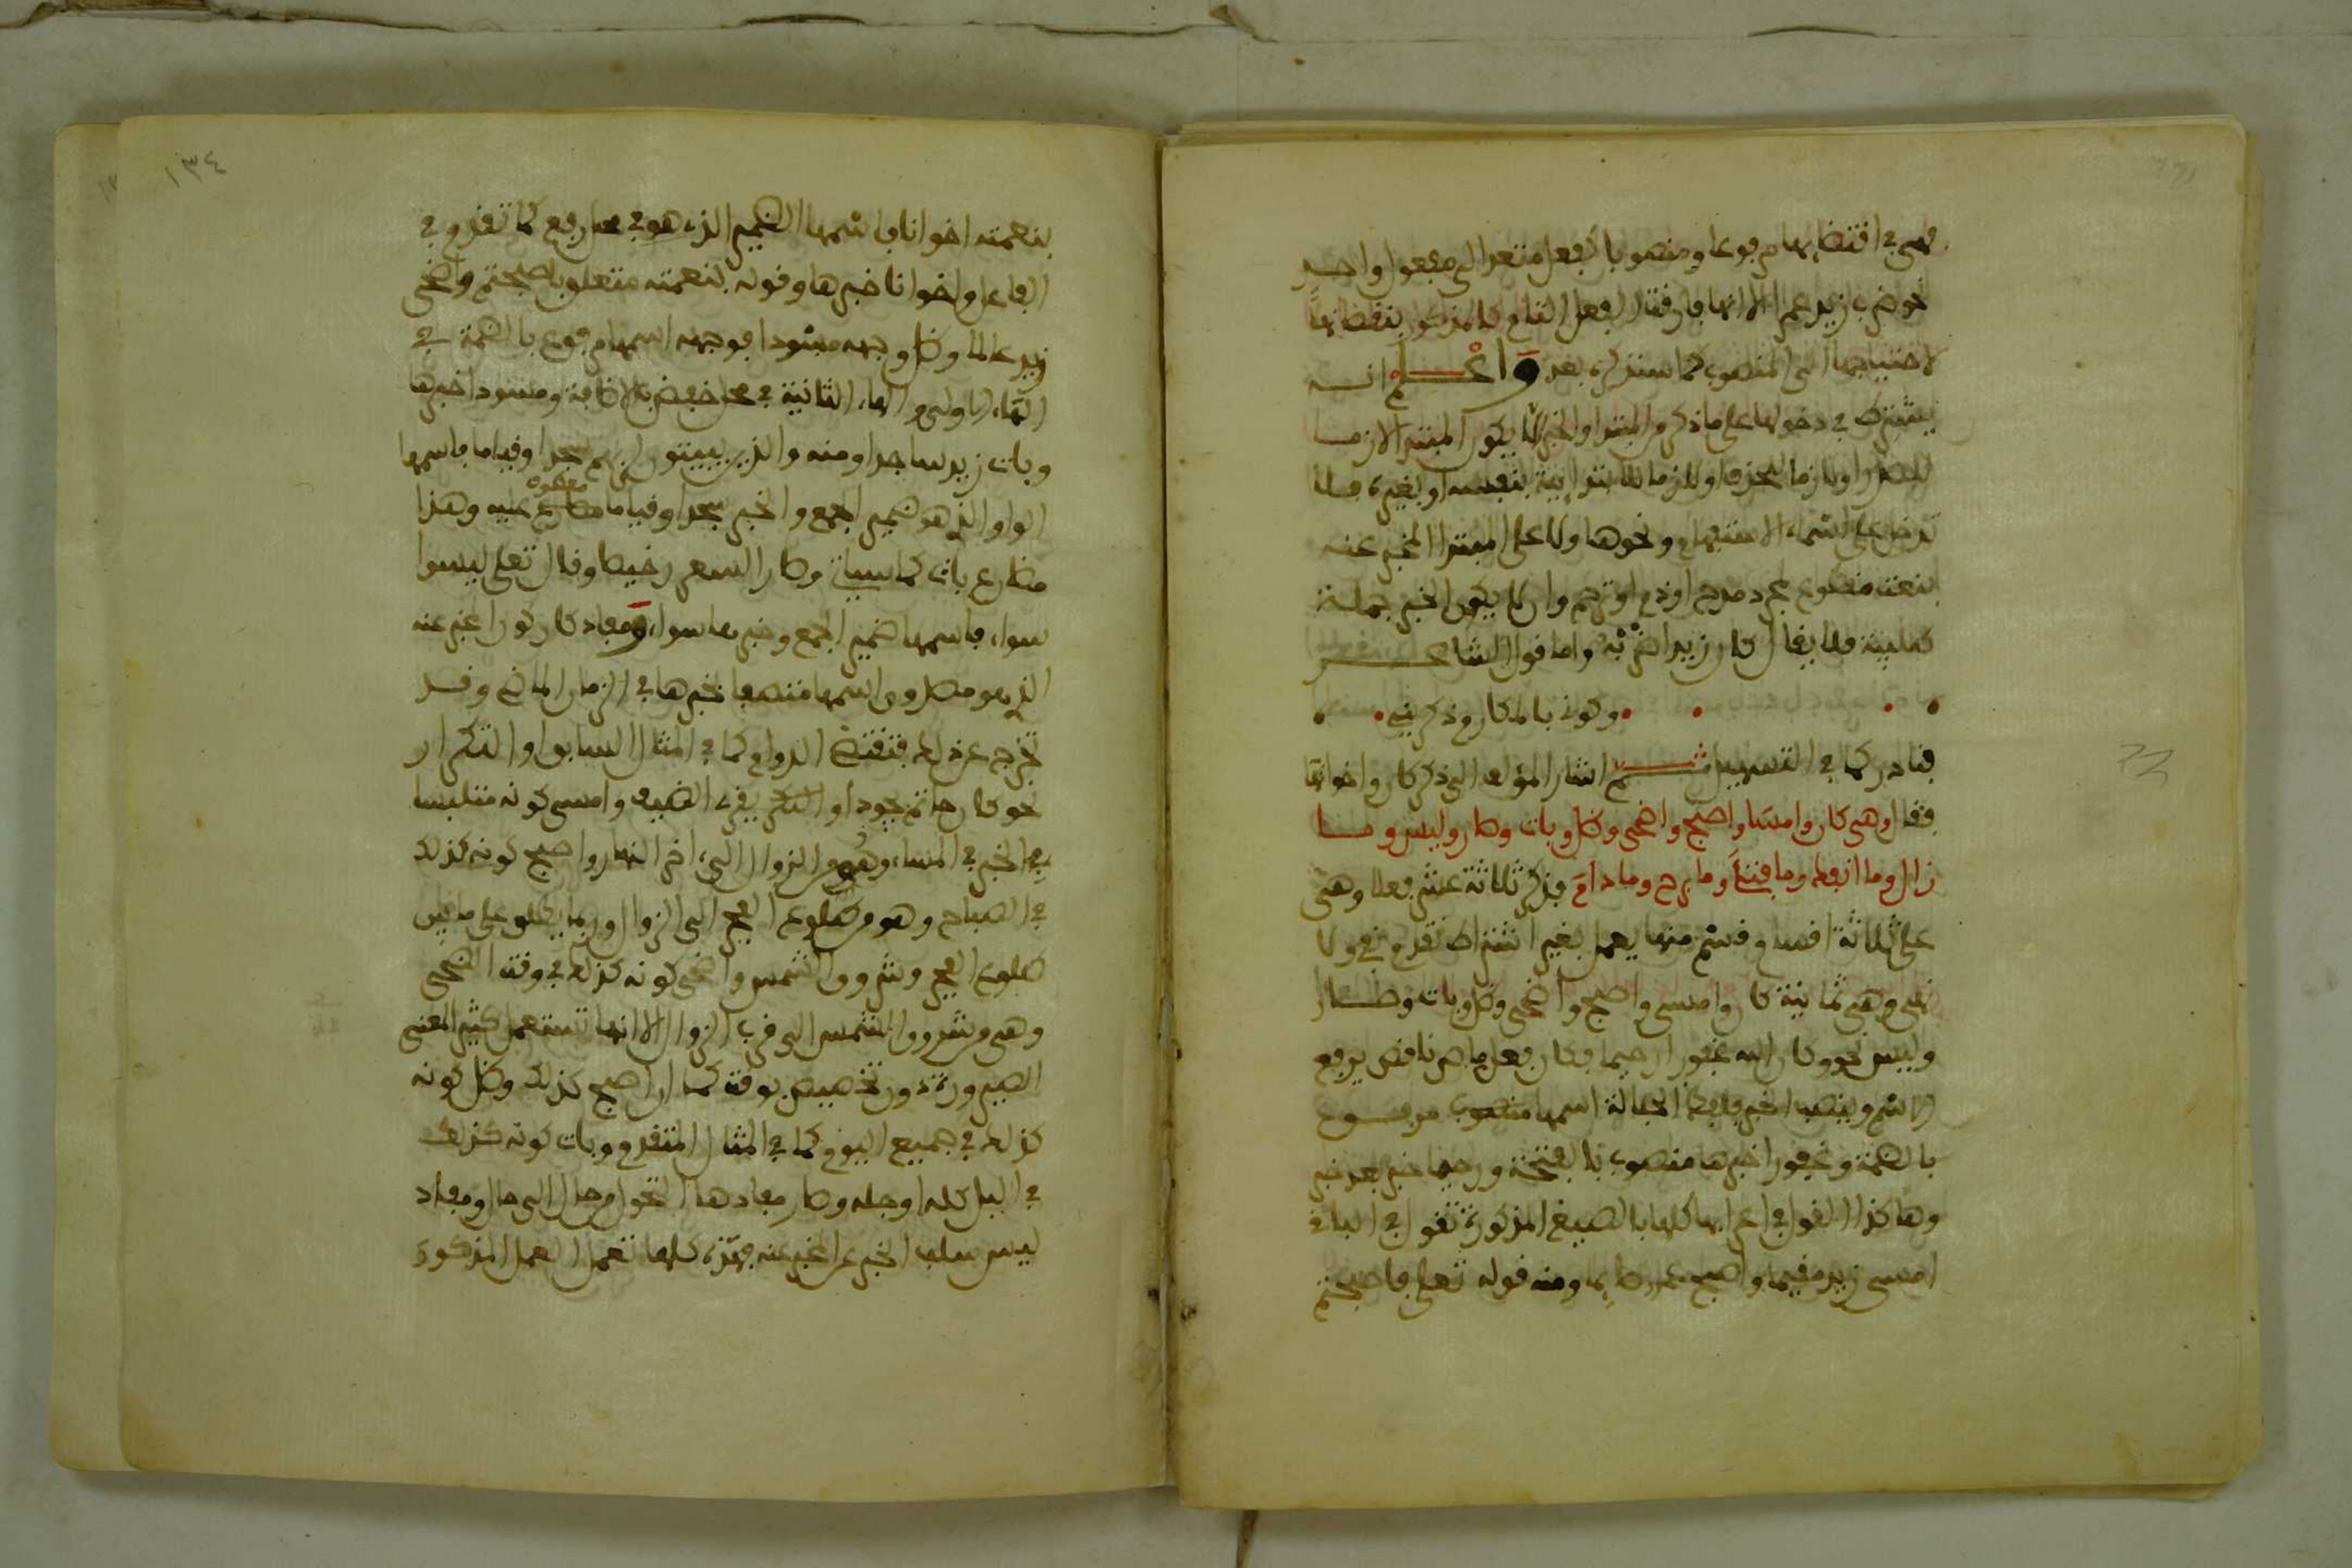 فهي في اقتضائها مرفوعا ومنصوبا كالفعل متعد الى مفعول واحد
نحو ضرب زيد عمرا الا انها فارقت الفعل التام كالمذكور بنقصانها
لاحتياجها الى المنصوب كما سنذكره بعد واعلم انه
يشترط في دخولها على ما ذكر من المبتدا والخبر ان لا يكون المبتدا لازما
للصدر او لازما للحذف او لازما للابتدائية بنفسه او بغيره فلا
تدخل على اسماء الاستفهام ونحوها ولا على المبتدا المخبر عنه
بنعت مقطوع لمجرد مدح او ذم او ترحم وان لا يكون الخبر جملة
طلبية فلا يقال كان زيد اضربه واما قول الشاعر
وكوني بالمكارم ذكريني
فنادر كما في التسهيل ثم اشار المؤلف الى ذكر كان واخواتها
فقال وهي كان وامسى واصبح واضحى وظل وبات وصار وليس وما
زال وما انفك وما فتئ وما برح وما دام فذكر ثلاثة عشر فعلا وهي
على ثلاثة اقسام قسم منها يعمل بغير اشتراط تقدم نفي ولا
نهي وهي ثمانية كان وامسى واصبح واضحى وظل وبات وصار
وليس نحو وكان الله غفورا رحيما فكان فعل ماض ناقص يرفع
الاسم وينصب الخبر ولفظ الجلالة اسمها مرفوع
بالضمة وغفورا خبرها منصوب بالفتحة ورحيما خبر بعد خبر
وهاكذا القول في اعرابها كلها بالصيغ المذكورة تقول في الباقي
امسى زيد مقيما واصبح عمرو صائما ومنه قوله تعلى فاصبحتم
بنعمته اخوانا فاسمها الضمير الذي هو في محل رفع كما تقدم في
الفاعل واخوانا خبرها وقوله بنعمته متعلق باصبحتم واضحى
زيد عالما وظل وجهه مسودا فوجهه اسمها مرفوع بالضمة في
الهاء الاولى والهاء الثانية في محل خفض بالاضافة ومسودا خبرها
وبات زيد ساجدا ومنه والذين يبيتون لربهم سجدا وقياما فاسمها
الواو الذي هو ضمير الجمع والخبر سجدا وقياما معطوف عليه وهذا
مضارع بات كما سياتي وصار السعر رخيصا وقال تعلى ليسوا
سواء فاسمها ضمير الجمع وخبرها سواء ومفاد كان كون المخبر عنه
الذي هو مصدوق اسمها متصفا بخبرها في الزمان الماضي وقد
تخرج عن ذلك فتقتضي الدوام كما في المثال السابق او التكرار
نحو كان حاتم يقري الضيف وامسى كونه متلبسا
بالخبر في المساء وهو من الزوال الى اخر النهار واصبح كونه كذلك
في الصباح وهو من طلوع الفجر الى الزوال وربما يطلق على ما بين
طلوع الفجر وشروق الشمس واضحى كونه كذلك في وقت الضحى
وهي من شروق الشمس الى قرب الزوال الا انها تستعمل كثيرا لمعنى
الصيرورة دون تخصيص بوقت كما ان اصبح كذلك وظل كونه
كذلك في جميع اليوم كما في المثال المتقدم وبات كونه كذلك
في الليل كله او جله وصار مفادها التحول من حال الى حال ومفاد
ليس سلب الخبر عن المخبر عنه فهذه كلها تعمل العمل المذكور
١٣٤